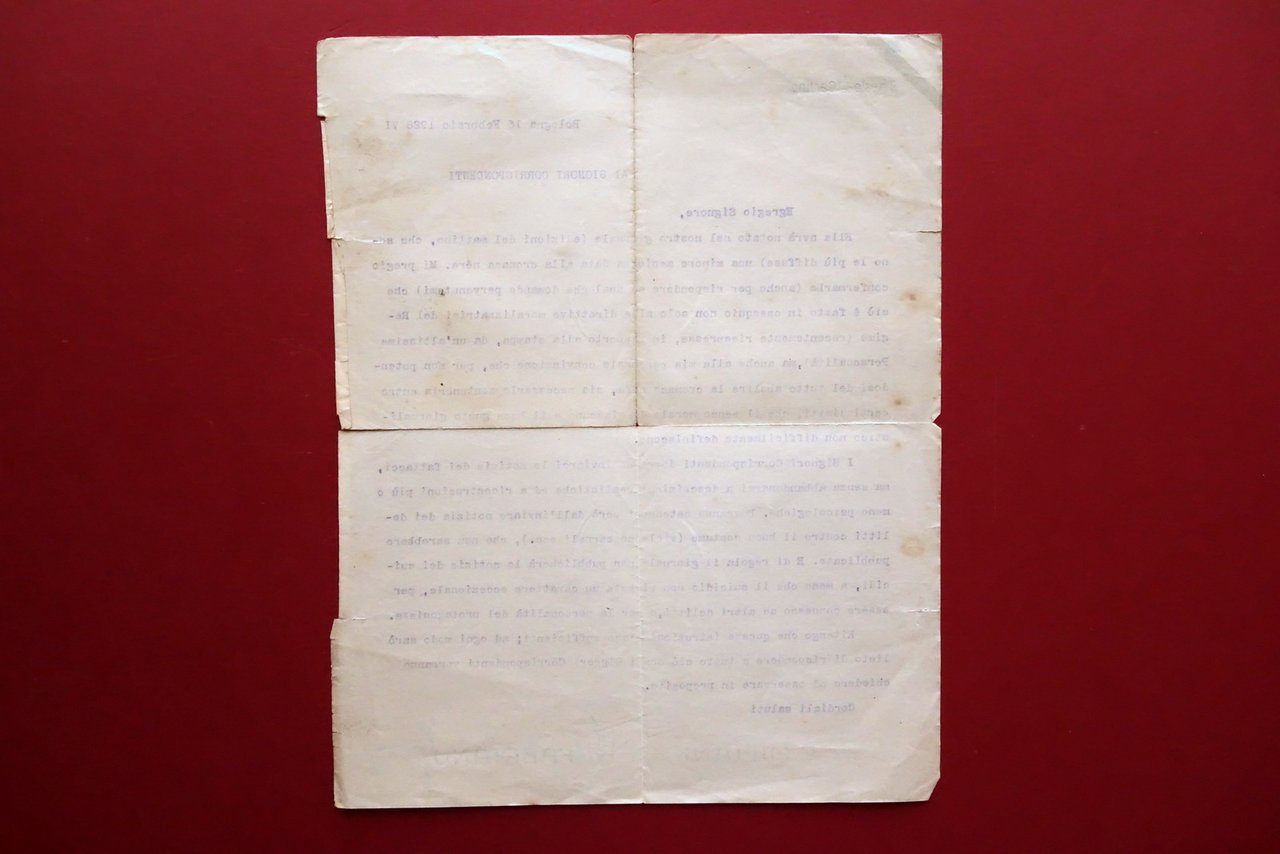 Bologna 16 Febbraio 1928 VI
AI SIGNORI CORRISPONDENTI
Egregio Signore,
Ella avrà notato nel nostro giornale (edizioni del mattino, che so-
no le più diffuse) una minore data alla cronaca nera. Mi pregio
confermarle (anche per rispondere ad domande pervenutemi) che
ciò è fatto in ossequio non solo alle direttive moralizzatrici del Re-
gime (recentemente riespresse, in rapporto alla stampa, da un'altissima
Personalità), ma anche alla mia personale convinzione che, per non poten-
dosi del tutto abolire la cronaca nera, sia necessario contenerla entro
certi limiti, che il senso morale e il buon gusto giornali-
stico non difficilmente definiscono.
I Signori Corrispondenti dovranno inviarci le notizie dei fattacci,
ma senza abbandonarsi a descrizioni e a ricostruzioni più o
meno psicologiche. Dovranno astenersi però dall'inviare notizie dei de-
litti contro il buon costume (violenze carnali ecc.), che non sarebbero
pubblicate. E di regola il giornale non pubblicherà le notizie dei sui-
cidi, a meno che il suicidio non rivesta un carattere eccezionale, per
essere connesso ad altri delitti, o per la personalità del protagonista.
Ritengo che queste istruzioni siano sufficienti; ad ogni modo sarò
lieto di rispondere a tutto ciò che i Signori Corrispondenti vorranno
chiedere od osservare in proposito.
Cordiali saluti